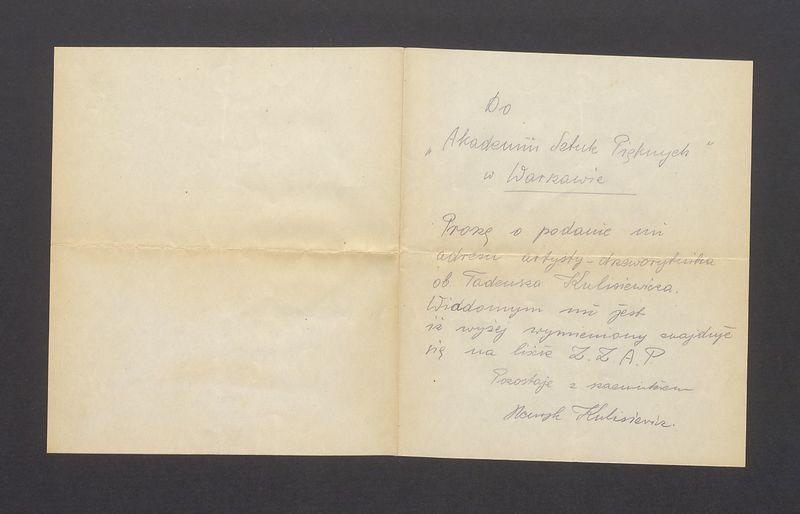 Do
„Akademii Sztuk Pięknych"
w Warszawie
Proszę o podanie mi
adresu artysty-drzeworytnika
ob. Tadeusza Kulisiewicza.
Wiadomym mi jest
iż wyżej wymieniony znajduje
się na liście Z.Z.A.P.
Pozostaję z szacunkiem
Henryk Kulisiewicz.